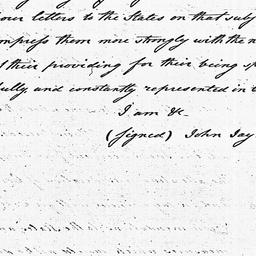 our letters to the States on that subj
mpress them more strongly with the n
their providing for their being sp
fully and constantly represented in
I am &c.
(signed) John Jay